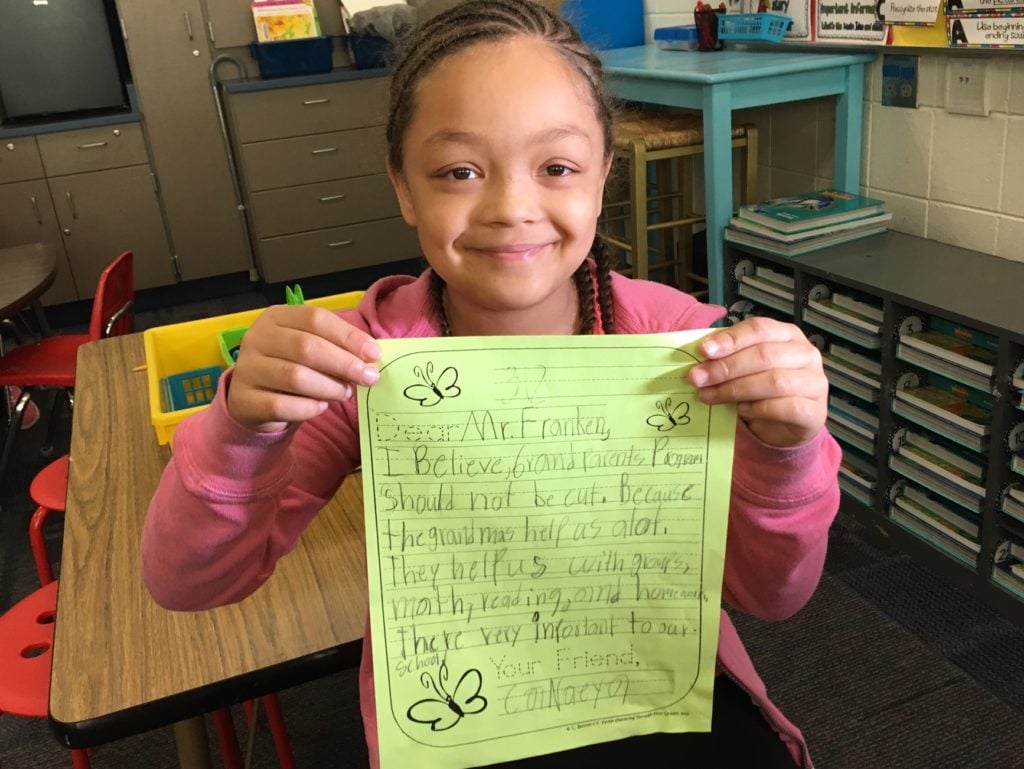 Important Inform
Recognize the plot
Use beginning
ending soun
Dear Mr. Franken,
I Believe, Grandparents Program
should not be cut. Because
the grandmas help us alot.
They help us with groups,
math, reading, and homework,
There very Important to our
School,
Your Friend,